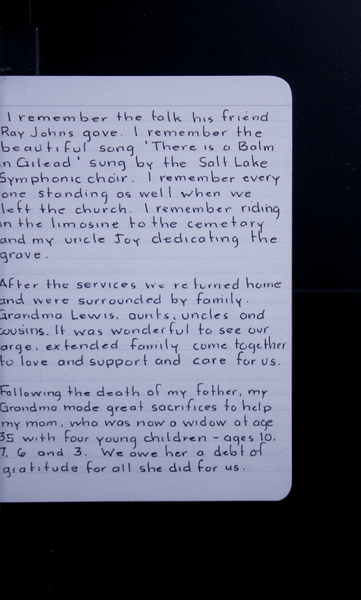 I remember the talk his friend
Ray Johns gave. I remember the
beautiful song 'There is a Balm
in Gilead' sung by the Salt Lake
Symphonic choir. I remember every
one standing as well when we
left the church. I remember riding
in the limosine to the cemetary
and my uncle Joy dedicating the
grave.
After the services we returned home
and were surrounded by family.
Grandma Lewis, aunts, uncles and
cousins. It was wonderful to see our
large, extended family come together
to love and support and care for us.
Following the death of my father, my
Grandma made great sacrifices to help
my mom, who was now a widow at age
35 with four young children - ages 10,
7, 6 and 3. We owe her a debt of
gratitude for all she did for us.